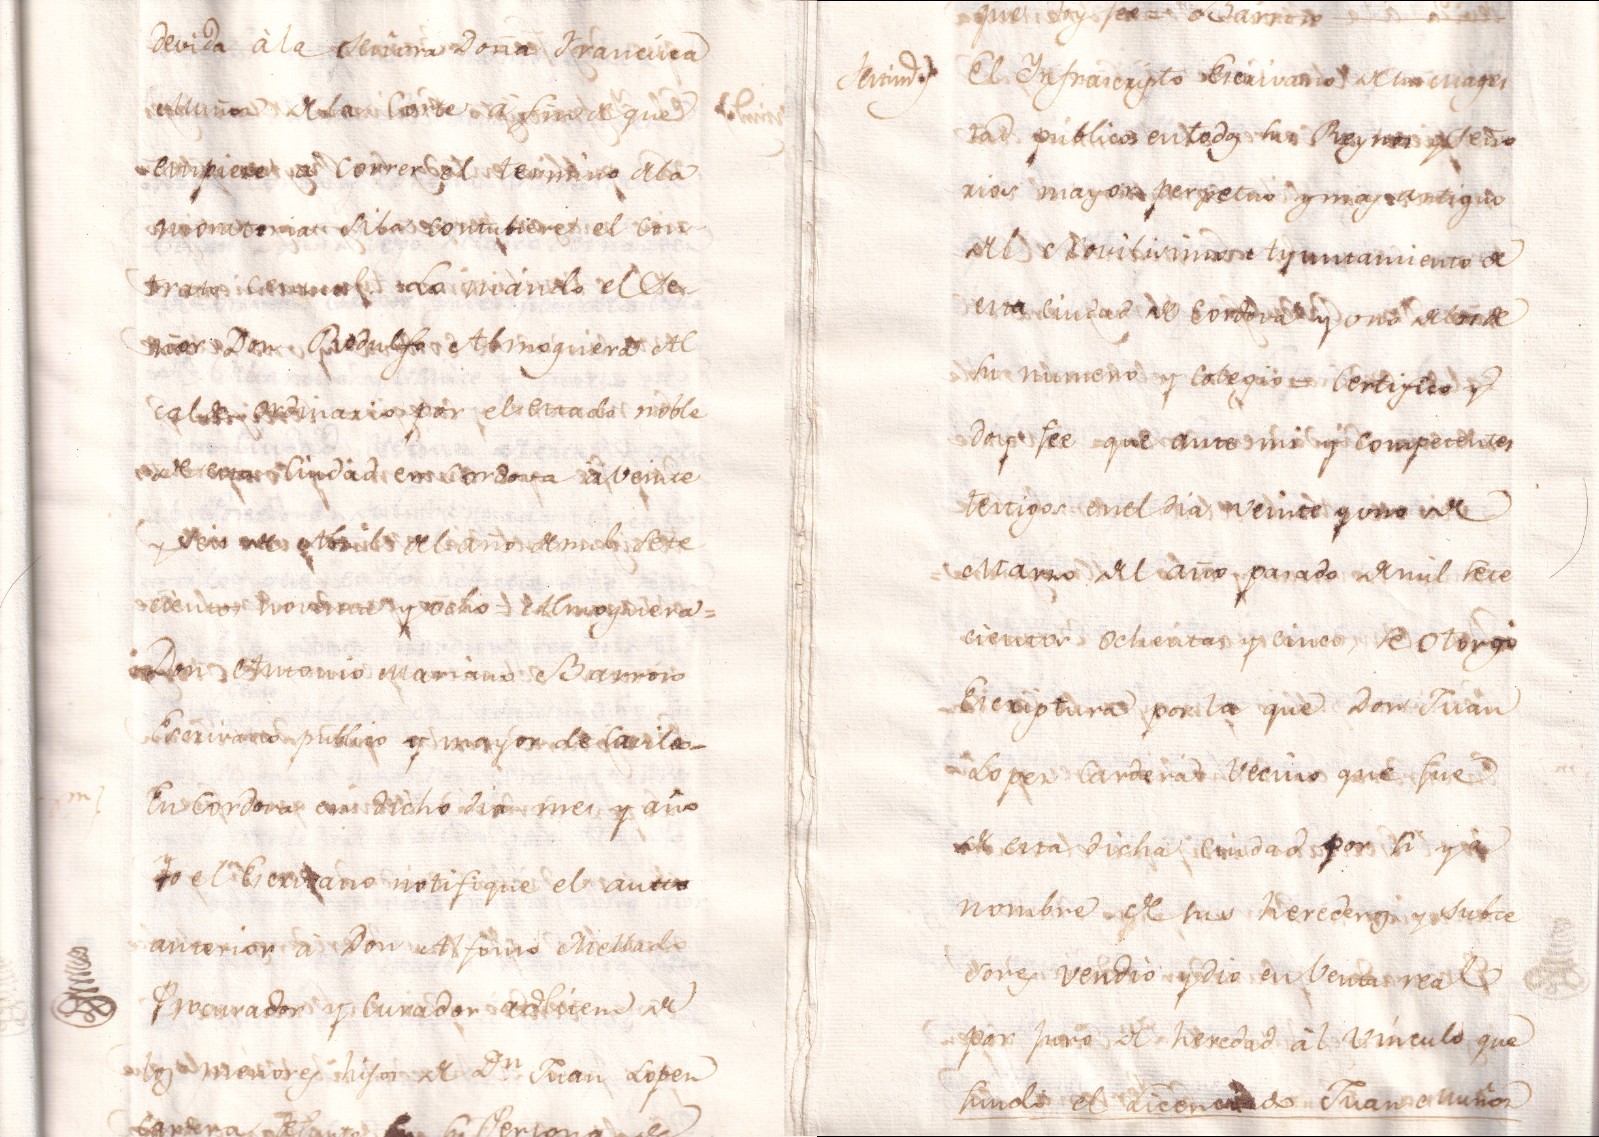 devida à la Señora Doña Francisca
Muñoz de la Corte a fin de que
empiese a correr el termino de la
moratoria si la contubiere el con-
trato Lo mandó el Se-
ñor Don Rodulfo Almoguera Al
calde ordinario por el estado noble
de esta Ciudad en Cordova à veinte
y seis de Abril del año de mil sete
cientos noventa y ocho = Almoguera =
Don Antonio Mariano Barroso
Escrivano publico y mayor de Cavildo-
En Cordova en dicho dia mes y año
Yo el Escrivano notifique el autto
anterior à Don Alfonso Mellado
Procurador y Curador adlitem de
los menores hijos de Dn Juan Lopez
Cardera su Persona de
que doy fee = Barroso
El Infraescripto Escrivano de su Mages
tad publico en todos sus Reynos y Seño
rios mayor perpetuo y mas antiguo
del Novilisimo Ayuntamiento de
esta Ciudad de Cordova y uno de los de
su numero y Colegio = Certifico y
doy fee que ante mi y competentes
testigos en el dia veinte y uno de
Marzo del año pasado de mil sete
cientos ochenta y cinco, se otorgó
Escriptura por la que Don Juan
Lopez Cardera Vecino que fue
de esta dicha Ciudad por si y à
nombre de sus herederos y subce
sores vendió y dio en Venta real
por juro de heredad àl Vinculo que
fundó el Licenciado Juan Muñoz